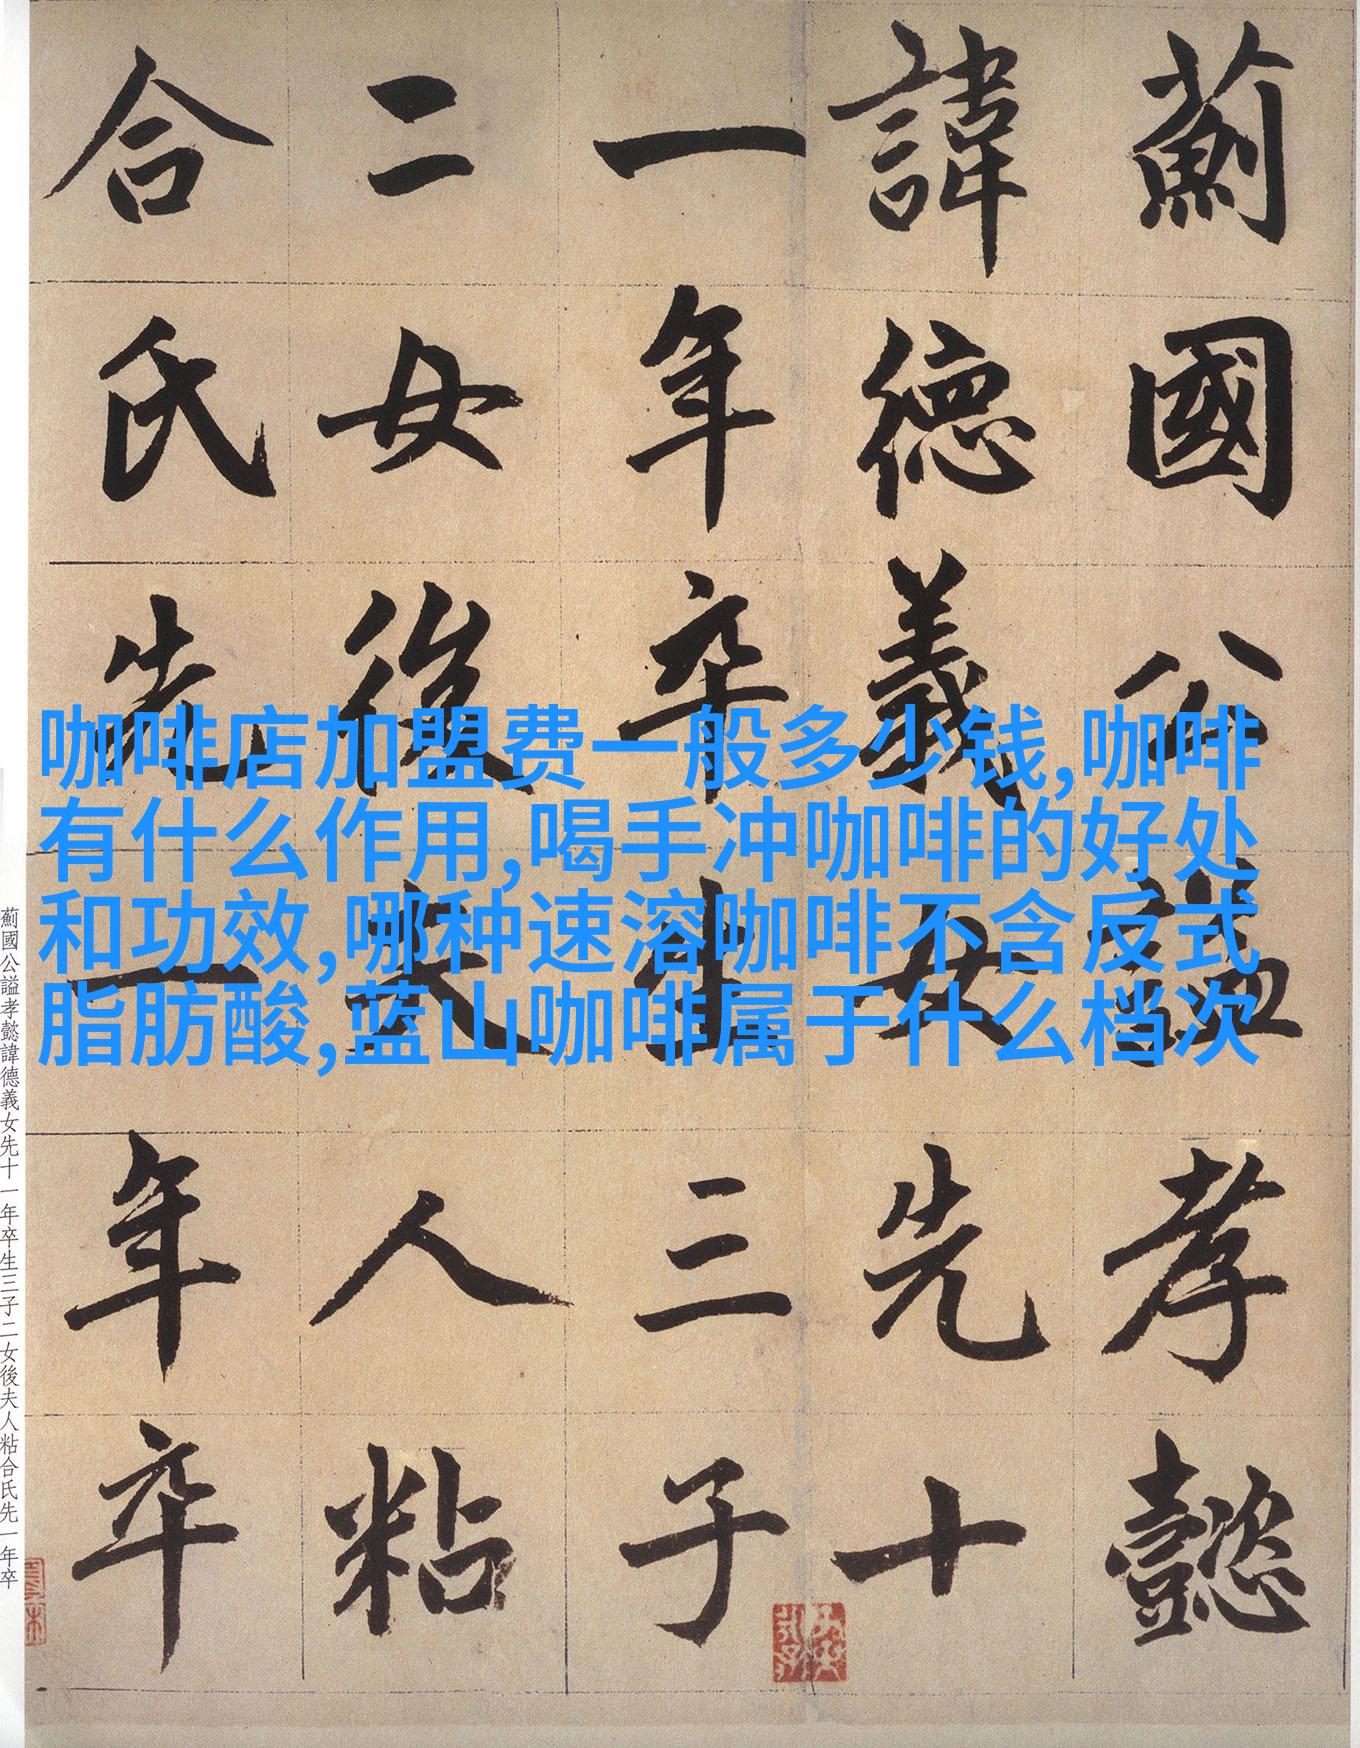 薊國公謚孝懿
諱德義女先十
一年卒生三子
二女後夫人粘
合氏先一年卒
咖啡店加盟费一般多少钱,咖啡
有什么作用,喝手冲咖啡的好处
和功效,哪种速溶咖啡不含反式
脂肪酸,蓝山咖啡属于什么档次
薊國公謚孝懿諱德義女先十一年卒生三子二女後夫人粘合氏先一年卒